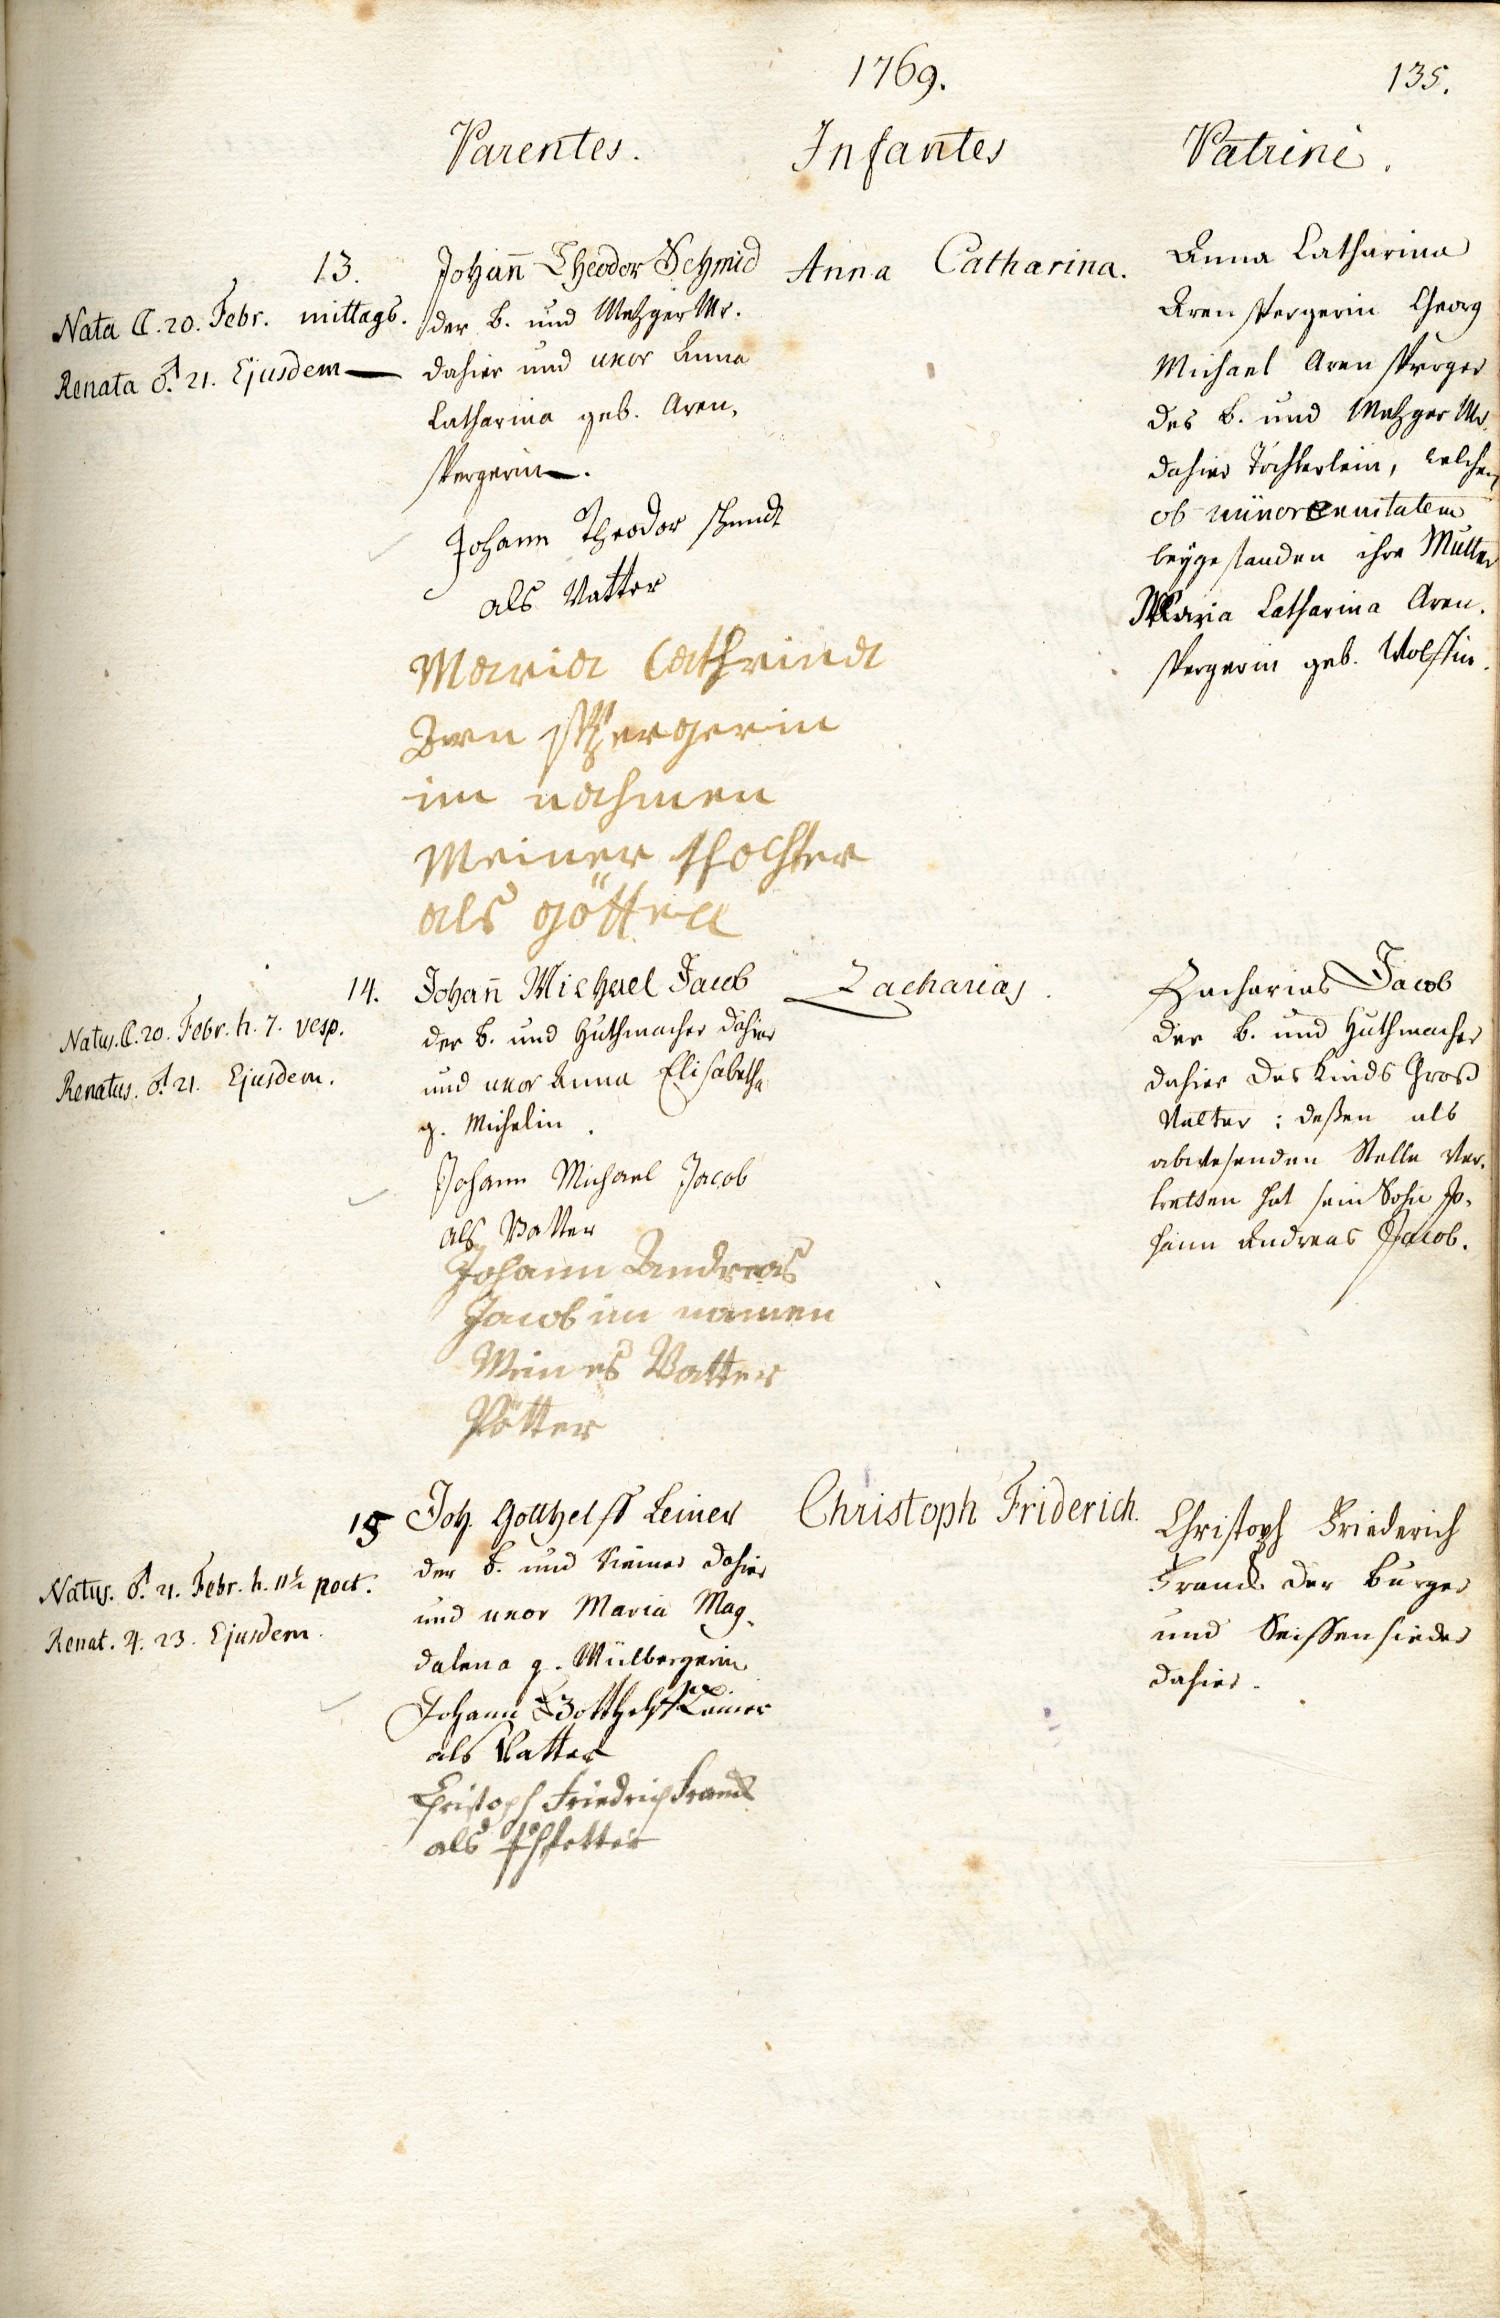 1769.
135.
Parentes.
Infantes
Patrini.
13.
Nata ☾. 20. Febr. mittags.
Renata ♂. 21. Ejusdem
Johan̄ Theodor Schmid
der b. und Metzger Mr.
dahier und uxor Anna
Catharina geb. Aren,
spergerin.
Johann Theodor Schmidt
als Vatter
Maria Cathrina
Arn spergerin
im nahmen
Meiner thochter
als göttel
Anna Catharina.
Anna Catharina
Arenspergerin Georg
Michael Arensperger
des b. und Metzger Mr.
dahier Töchterlein, welchen
ob minorennitatem
beygestanden ihre Mutter
Maria Catharina Aren.
spergerin geb. Wolffin.
14.
Natus. ☾. 20. Febr. h. 7. vesp.
Renatus. ♂. 21. Ejusdem.
Johan̄ Michael Jacob
der b. und Huthmacher dahier
und uxor Anna Elisabetha
g. Michelin.
Johann Michael Jacob
als Vatter
Johann Andreas
Jacob im namen
Meines Vatter
Pötter
Zacharias.
Zacharias Jacob
der b. und Huthmacher
dahier des Kinds Groß
Vatter: deßen als
abwesenden Stelle ver.
tretten hat sein Sohn Jo,
hann Andreas Jacob.
15
Natus. ♂. 21. Febr. h. 11½ noct.
Renat. ♃. 23. Ejusdem.
Joh. Gotthelff Leiner
der b. und dahier
und uxor Maria Mag,
dalena g. Mülbergerin
Johann Gotthelff Leiner
als Vatter
Christoph Friedrich Franck
als Pfetter
Christoph Friderich.
Christoph Friederich
Franck der Burger
und Seiffensieder
dahier.